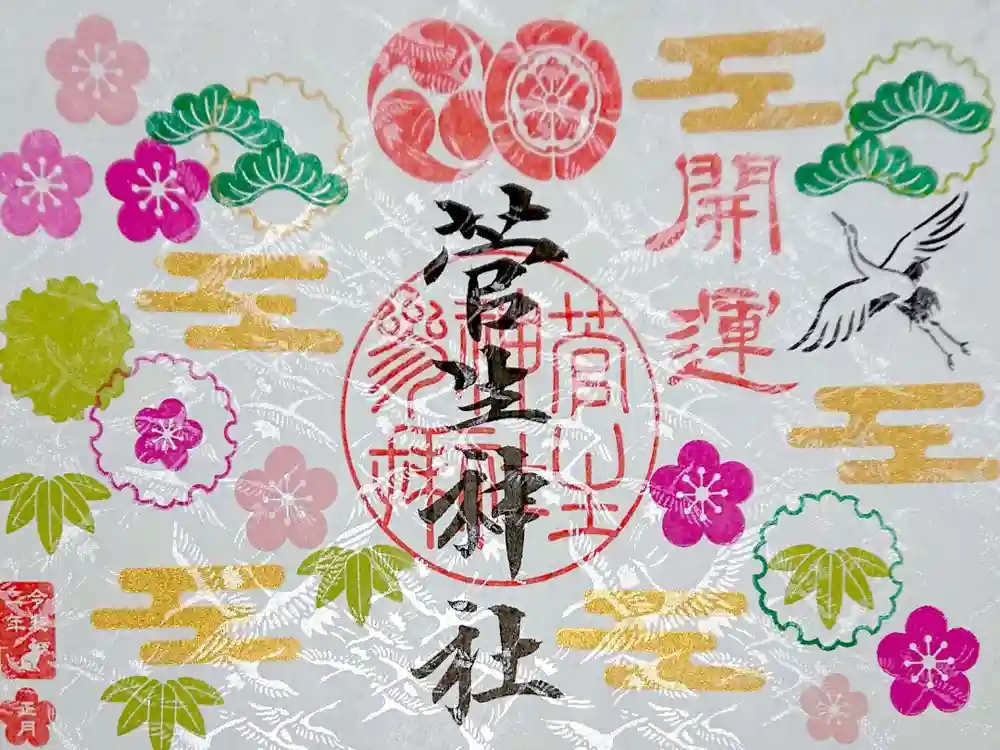 開運
菅生神社
菅生
神社
參拝
令和
二年
正月